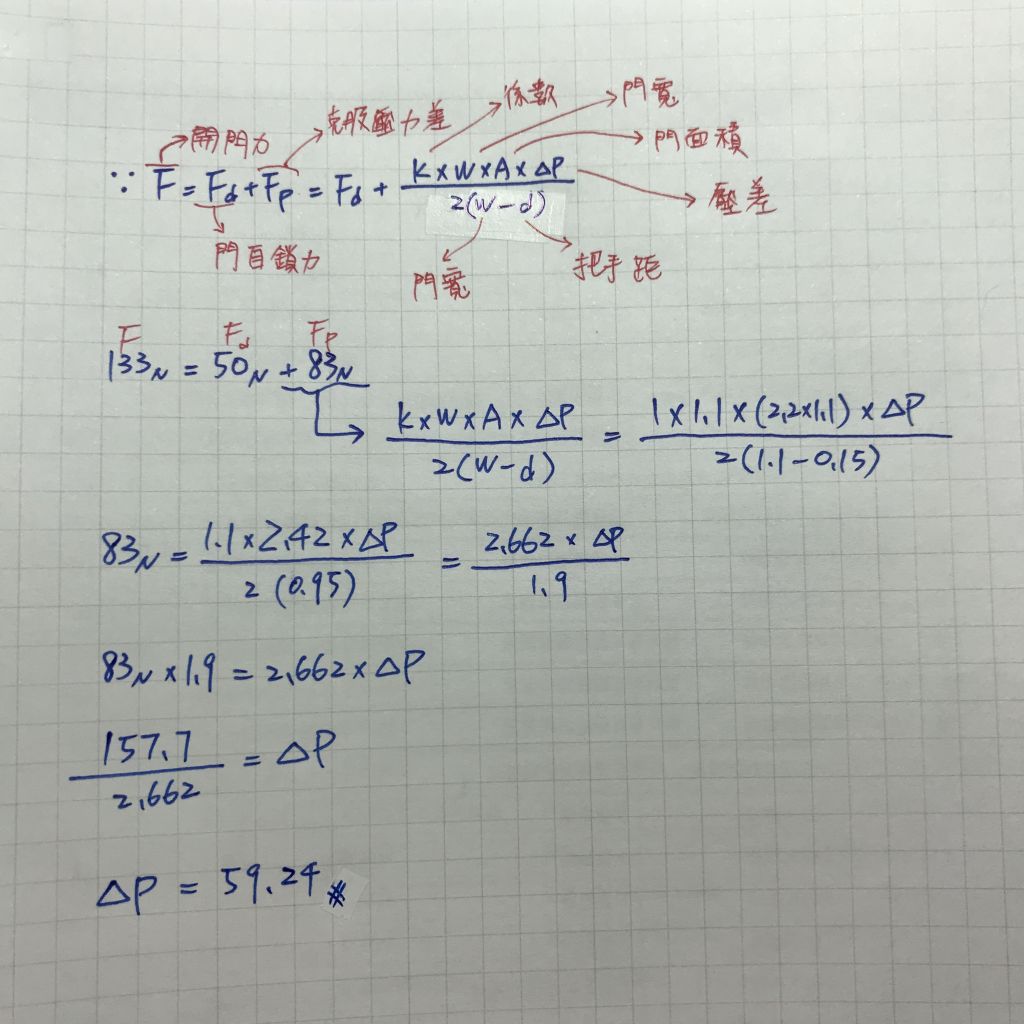 係數
門寬
開門力
克服壓力差
門面積
∵ F = Fd + Fp = Fd + K×W×A×△P / 2(W-d)
壓差
門自鎖力
門寬
把手距
F Fd Fp
133N = 50N + 83N
K×W×A×△P / 2(W-d) = 1×1.1×(2.2×1.1)×△P / 2(1.1-0.15)
83N = 1.1×2.42×△P / 2(0.95) = 2.662×△P / 1.9
83N×1.9 = 2.662×△P
157.7 / 2.662 = △P
△P = 59.24 #